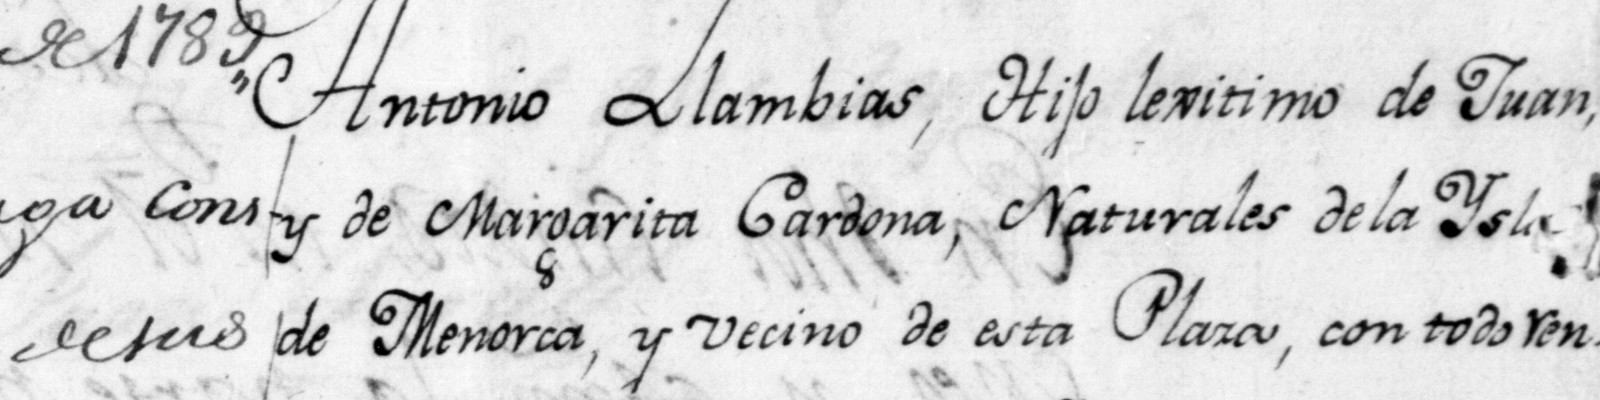 de 1789
"Antonio Llambias, Hijo lexitimo de Juan,
Cons y de Margarita Cardona, Naturales de la Ysla
de sus de Menorca, y vecino de esta Plaza, con todo ren